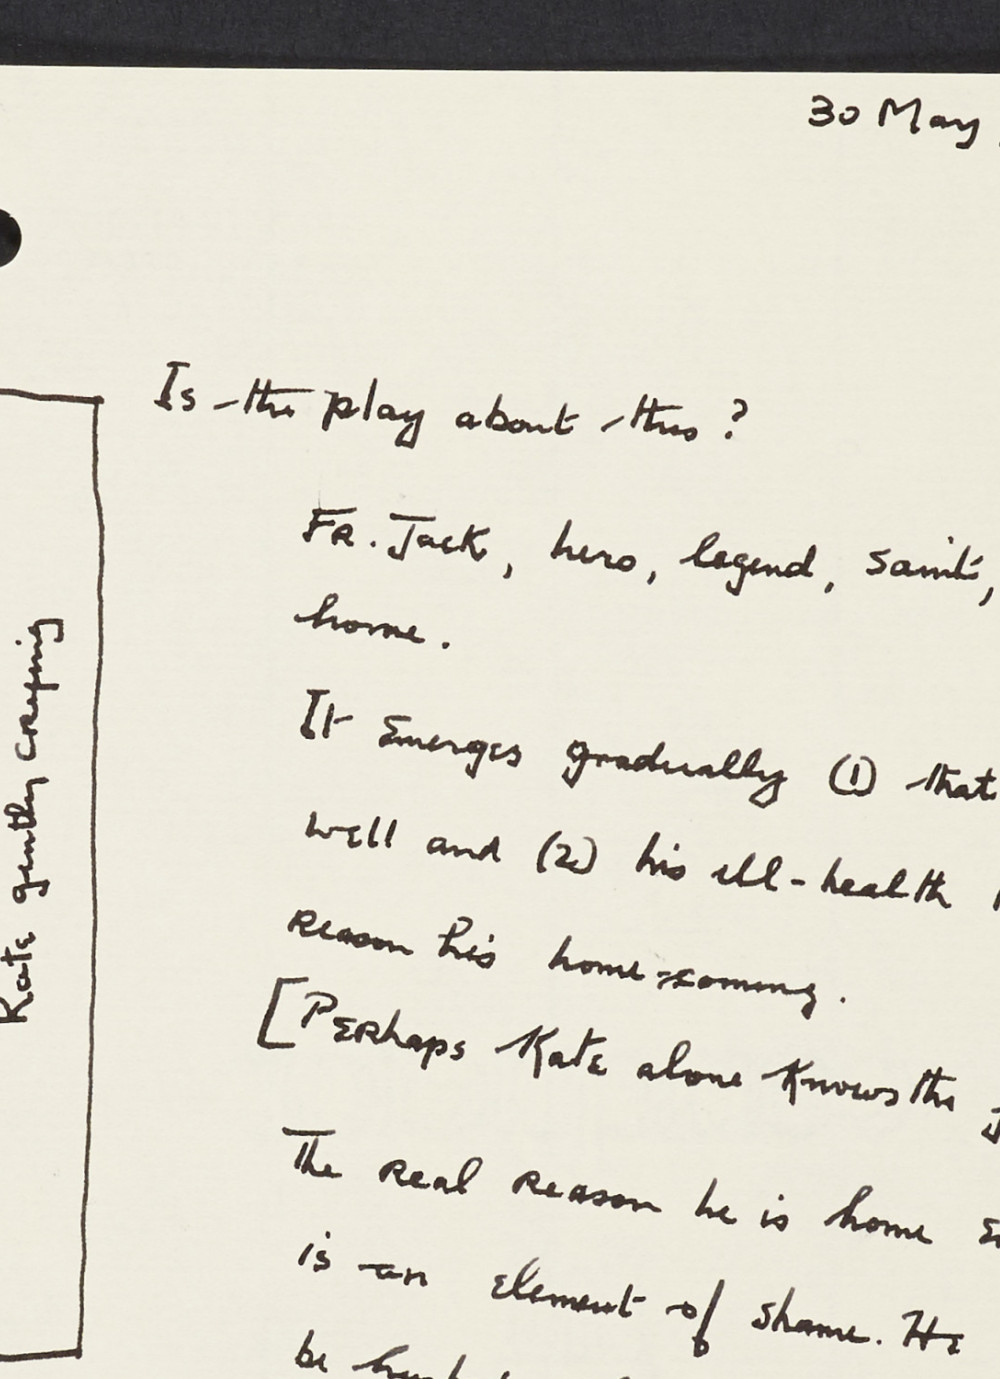 30 May
Is the play about this?
Fr. Jack, hero, legend, saint,
home.
It emerges gradually (1) that
well and (2) his ill-health
reason his home-coming.
[Perhaps Kate alone knows the
The real reason he is home
is an element of shame. He
be
Kate gently crying